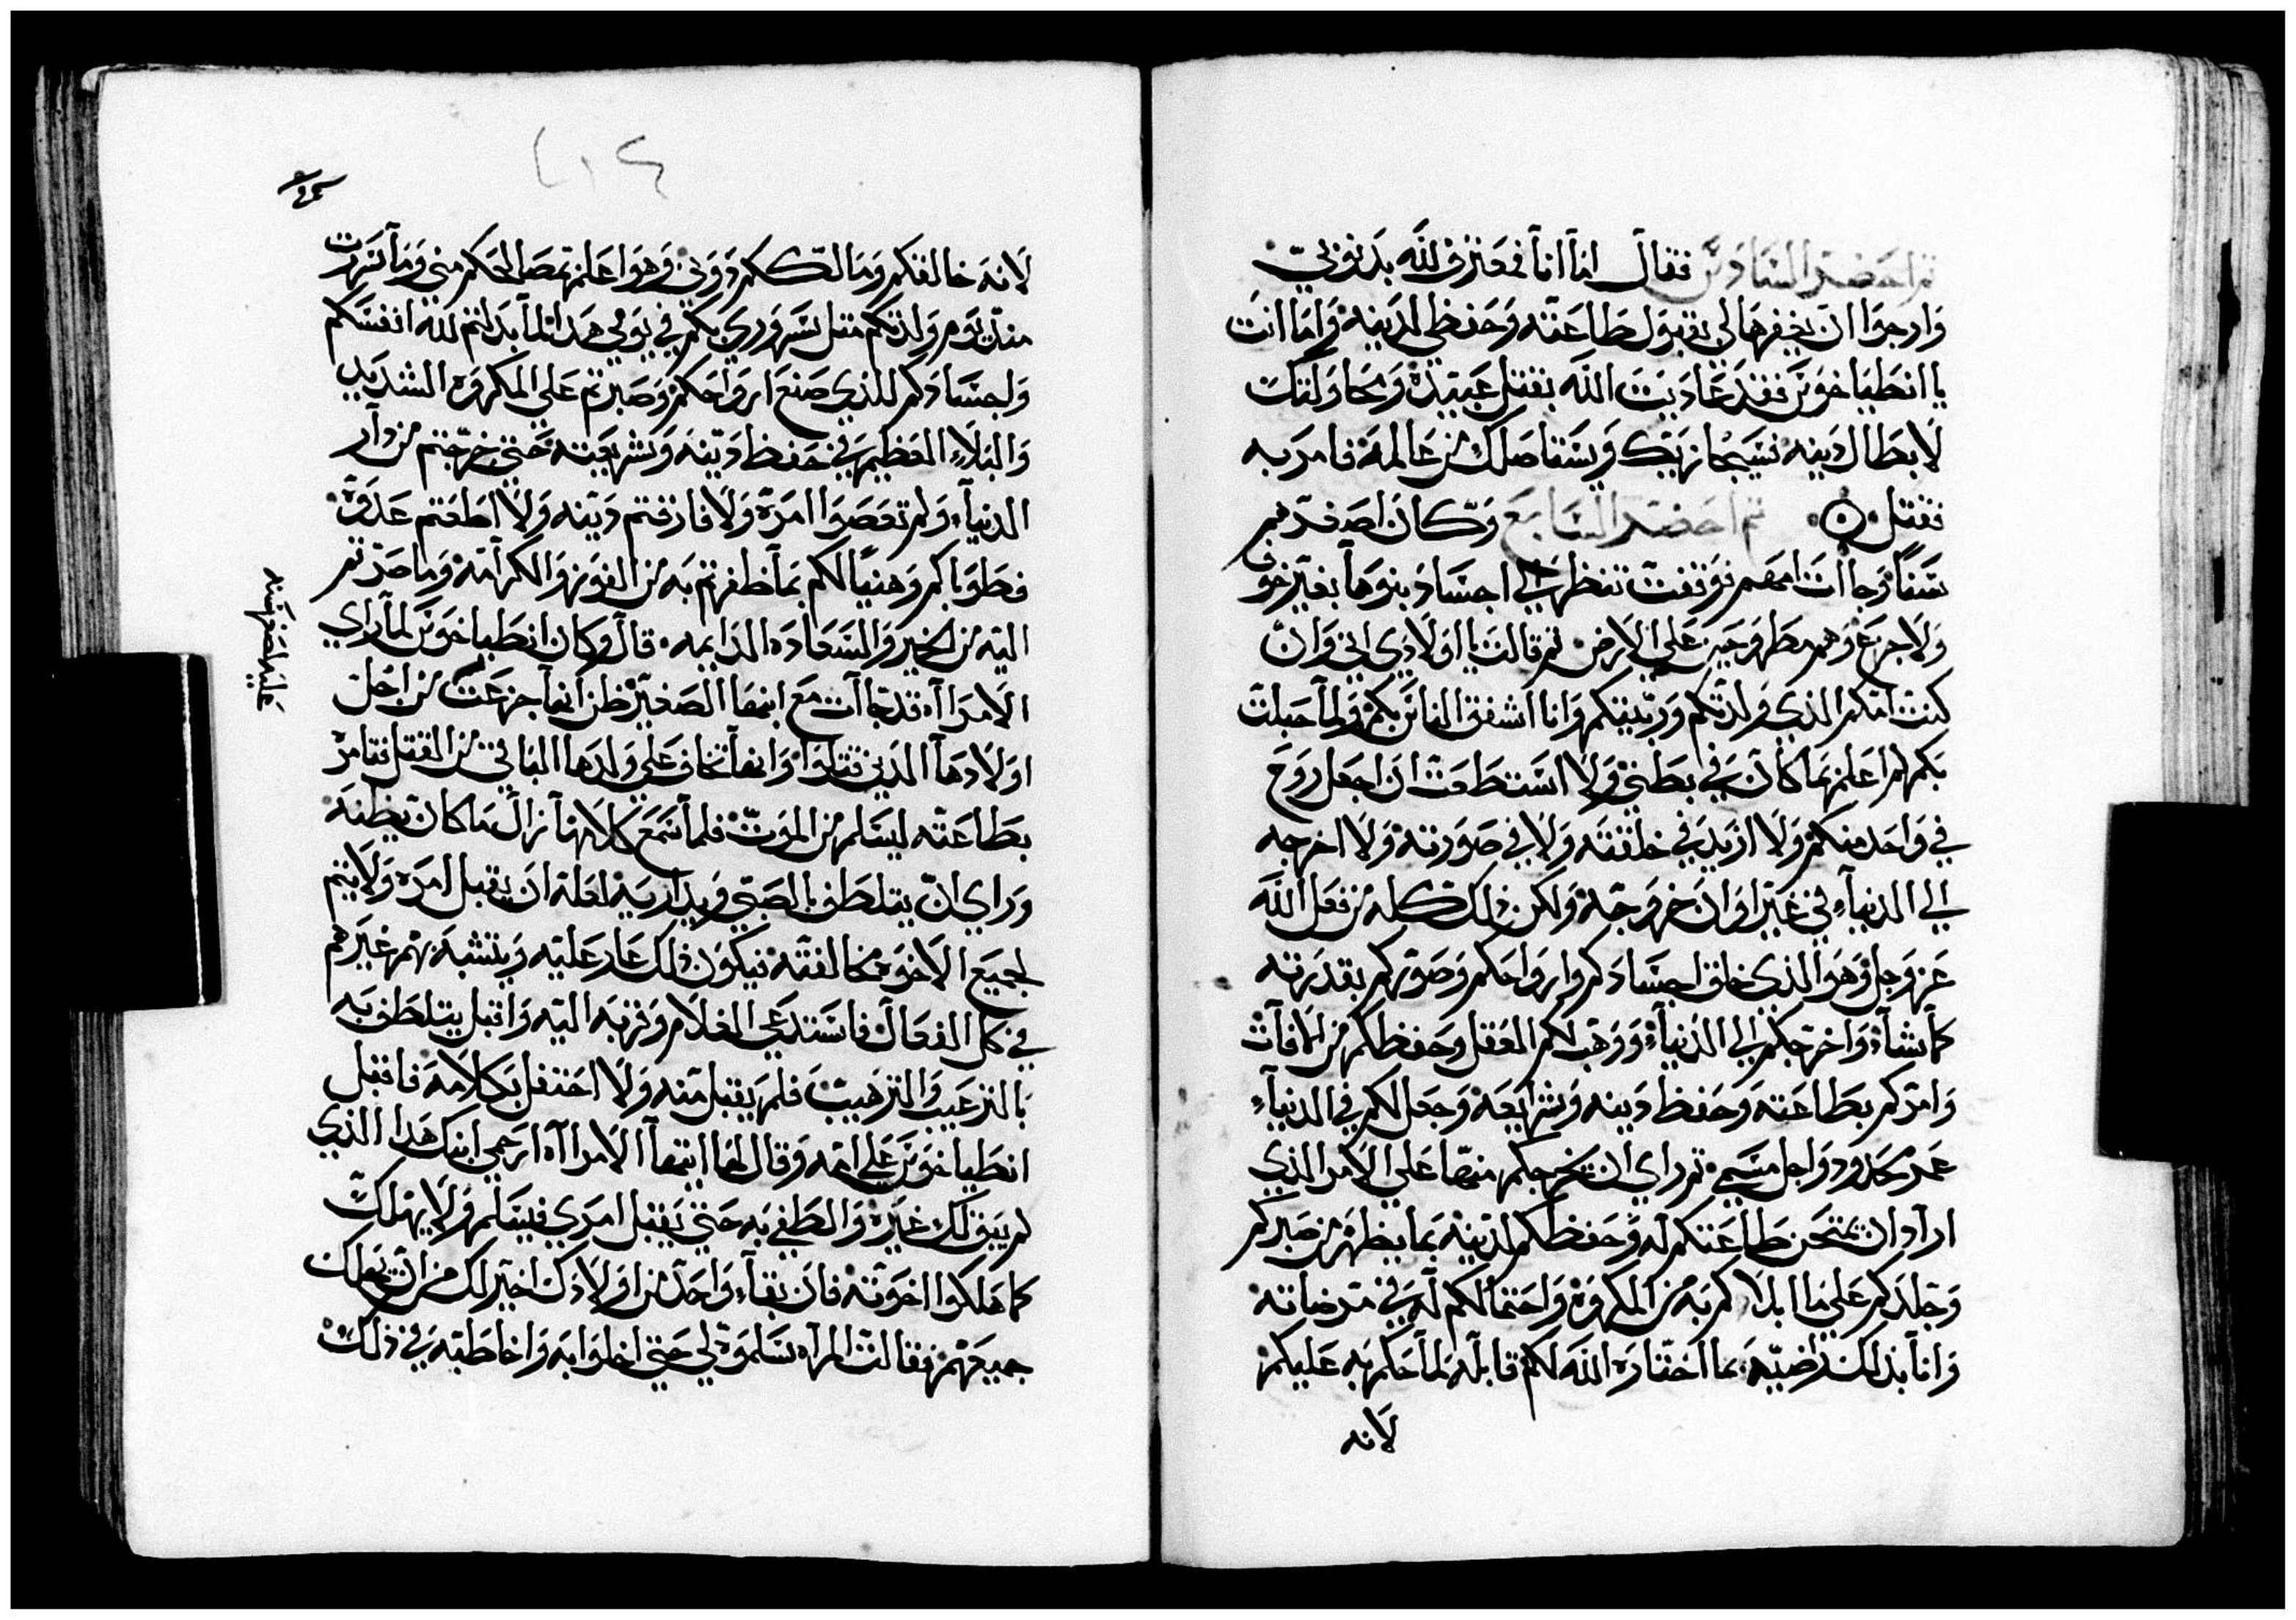 ثم احضر السادس فقال اما انا فمعترف لله بذنوبي
وارجوا ان يغفرها لي بقبول طاعته وحفظي لدينه واما انت
يا انطياخوس فقد عاديت الله بقتل عبيده ومحاولتك
لابطال دينه سيجازيك ويستاصلك من عالمه فامر به
فقتل ثم احضر السابع وكان اصغرهم
سنا وجاات امهم فوقفت تنظر الي اجساد بنوها بغير خوف
ولا جزع وهم مطروحين علي الارض ثم قالت يا اولادي اني وان
كنت امكم الذي ولدتكم وربيتكم وانا اشفق الناس بكم ولما حبلت
بكم لم اعلم بما كان في بطني ولا استطعت ان اجعل روح
في واحد منكم ولا ازيد في خلقته ولا في صورته ولا اخرجه
الي الدنيا في غير اوان خروجه ولكن ذلك كله من فعل الله
عز وجل وهو الذي خلق اجسادكم وارواحكم وصوركم بقدرته
كما شاء واخرجكم الي الدنيا ووهب لكم العقل وحفظكم من الافات
وامركم بطاعته وحفظ دينه وشرايعه وجعل لكم في الدنيا
عمر محدود واجل مسمي ثم راي ان يخرجكم منها علي الامر الذي
اراد ان يمتحن طاعتكم له وحفظكم لدينه بما يظهر من صبركم
وجلدكم علي ما ابلاكم به من المكروه واحتمالكم له في مرضاته
وانا بذلك راضيه بما اختاره الله لكم قابله لما حكم به عليكم
لانه
٢١٤
لانه خالقكم ومالككم دوني وهو اعلم بمصالحكم مني وما سررت
منذ يوم ولدتكم مثل سروري بكم في يومي هذا لما بذلتم لله انفسكم
واجسادكم للذي صنع ارواحكم وصبرتم علي المكروه الشديد
والبلاء العظيم في حفظ دينه وشريعته حتي خرجتم من دار
الدنيا ولم تعصوا امره ولا فارقتم دينه ولا اطعتم عدوه
فطوباكم وهنيا لكم بما ظفرتم به من الفوز والكرامه وما صرتم
اليه من الخير والسعاده الدايمه قال وكان انطياخوس لما راي
الامراه قد جاات مع ابنها الصغير ظن انها جزعت من اجل
اولادها الذين قتلوا وانها تخاف علي ولدها الباقي من القتل فتامره
بطاعته ليسلم من الموت فلما سمع كلامها زال ما كان يظنه
وراي ان يتلطف بالصبي ويداريه لعله ان يقبل امره ولا يتم
لجميع الاخوه مخالفته فيكون ذلك عار عليه ويتشبه بهم غيرهم
في كل الفعال فاستدعي الغلام وقربه اليه واقبل يتلطف به
بالترغيب والترهيب فلم يقبل منه ولا احتفل بكلامه فاقبل
انطياخوس علي امه وقال لها ايتها الامراه ارحمي ابنك هذا الذي
لم يبق لك غيره والطفي به حتي يقبل امري فيسلم ولا يهلك
كما هلكوا اخوته فان بقاء واحد من اولادك اخير لك من ان يهلك
جميعهم فقالت المراه سلموه لي حتي اخلوا به واخاطبه في ذلك